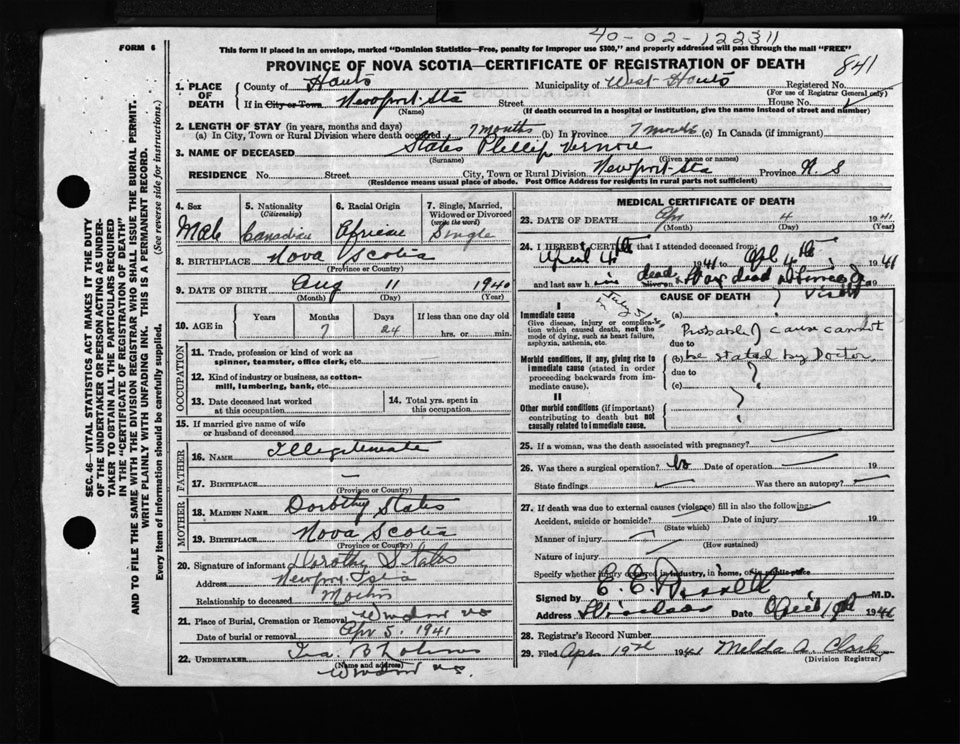 40-02-122311
FORM 6
This form if placed in an envelope, marked "Dominion Statistics—Free, penalty for improper use $300," and properly addressed will pass through the mail "FREE"
PROVINCE OF NOVA SCOTIA—CERTIFICATE OF REGISTRATION OF DEATH
841
1. PLACE OF DEATH
County of Hants Municipality of West Hants Registered No.
(For use of Registrar General only)
If in City or Town Newport Sta Street House No.
(Name) (If death occurred in a hospital or institution, give the name instead of street and number)
2. LENGTH OF STAY (in years, months and days)
(a) In City, Town or Rural Division where death occurred 7 months (b) In Province 7 months (c) In Canada (if immigrant)
3. NAME OF DECEASED States Phillip Vernon
(Surname) (Given name or names)
RESIDENCE No. Street City, Town or Rural Division Newport Sta Province N. S
(Residence means usual place of abode. Post Office Address for residents in rural parts not sufficient)
4. Sex Male
5. Nationality (Citizenship) Canadian
6. Racial Origin African
7. Single, Married, Widowed or Divorced (write the word) Single
8. BIRTHPLACE Nova Scotia
(Province or Country)
9. DATE OF BIRTH Aug 11 1940
(Month) (Day) (Year)
10. AGE in Years Months Days If less than one day old
7 24 hrs. or min.
OCCUPATION
11. Trade, profession or kind of work as spinner, teamster, office clerk, etc.
12. Kind of industry or business, as cotton-mill, lumbering, bank, etc.
13. Date deceased last worked at this occupation
14. Total yrs. spent in this occupation
15. If married give name of wife or husband of deceased
FATHER
16. NAME Illegitimate
17. BIRTHPLACE —
(Province or Country)
MOTHER
18. MAIDEN NAME Dorothy States
19. BIRTHPLACE Nova Scotia
(Province or Country)
20. Signature of informant Dorothy States
Address Newport
Relationship to deceased
21. Place of Burial, Cremation or Removal Windsor
Date of burial or removal Apr 5. 1941
22. UNDERTAKER Ira.
(Name and address)
Windsor
MEDICAL CERTIFICATE OF DEATH
23. DATE OF DEATH Apr 4 1941
(Month) (Day) (Year)
24. I HEREBY CERTIFY that I attended deceased from:
April 4th 1941 to Apl 4th 1941
and last saw h alive on dead Was dead 19
visit
CAUSE OF DEATH
I
Immediate cause
Give disease, injury or complication which caused death, not the mode of dying, such as heart failure, asphyxia, asthenia, etc.
(a) ?
Probable cause cannot
due to
(b) be stated by Doctor.
due to ?
(c)
Morbid conditions, if any, giving rise to immediate cause (stated in order proceeding backwards from immediate cause).
II
Other morbid conditions (if important) contributing to death but not causally related to immediate cause.
25. If a woman, was the death associated with pregnancy?
26. Was there a surgical operation? No Date of operation 19
State findings Was there an autopsy?
27. If death was due to external causes (violence) fill in also the following:
Accident, suicide or homicide? Date of injury 19
(State which)
Manner of injury
(How sustained)
Nature of injury
Specify whether injury occurred in industry, in home, or in public place
Signed by E. E. M.D.
Address Date April 1941
28. Registrar's Record Number
29. Filed Apr 19th 1941 Melda A. Clark
(Division Registrar)
SEC. 46—VITAL STATISTICS ACT MAKES IT THE DUTY
OF THE UNDERTAKER OR PERSON ACTING AS UNDER-
TAKER TO OBTAIN ALL THE PARTICULARS REQUIRED
IN THE "CERTIFICATE OF REGISTRATION OF DEATH"
AND TO FILE THE SAME WITH THE DIVISION REGISTRAR WHO SHALL ISSUE THE BURIAL PERMIT.
WRITE PLAINLY WITH UNFADING INK. THIS IS A PERMANENT RECORD.
Every item of information should be carefully supplied. (See reverse side for instructions.)